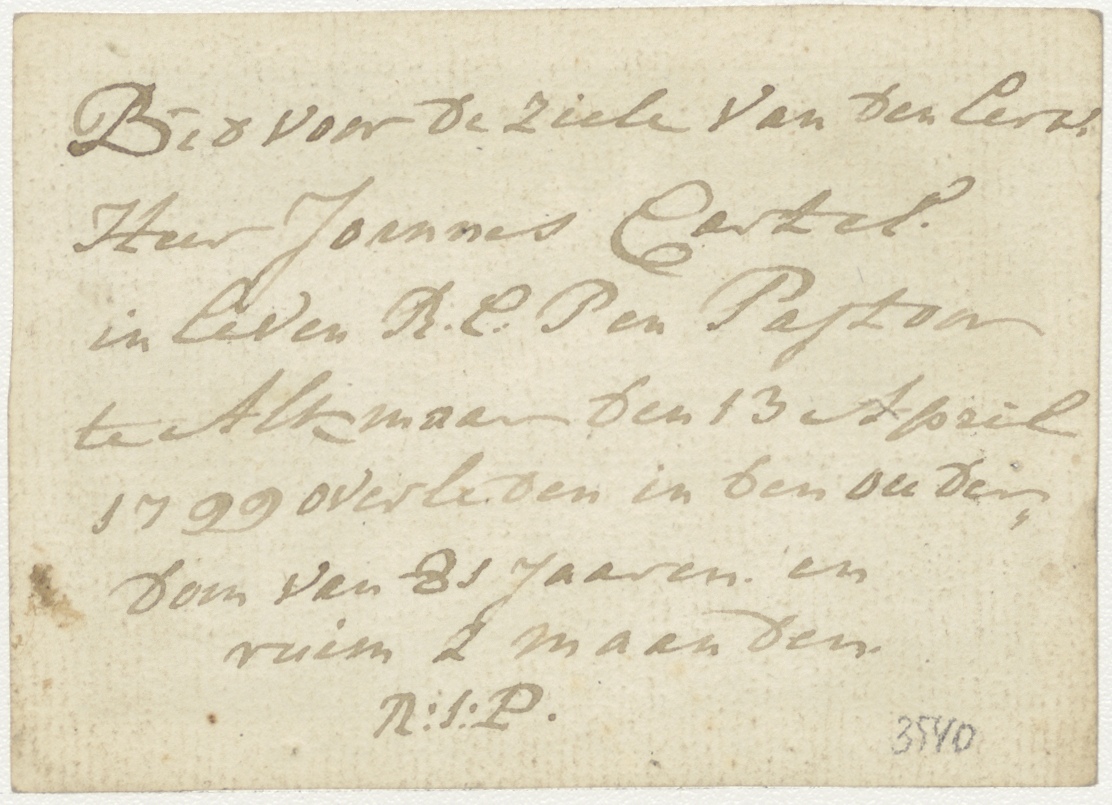 Bed voor de ziele van den Eerw:
Heer Joannes Cartel.
in leven R. C. P en Pastoor
te Alkmaar den 13 April
1799 overleden in den ouder„
dom van 81 Jaaren. en
ruim 2 maanden.
R:I:P.
3540